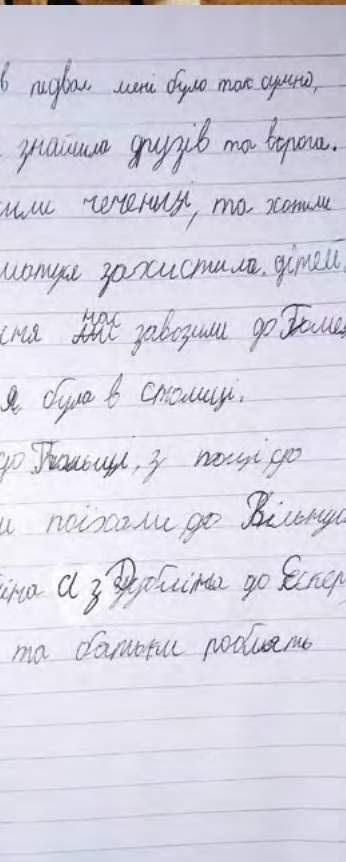 в підвал мені було так сумно,
знайшла друзів та ворога.
или чеченці, та хотіли
матуся захистила. дітей.
ня нас завозили до Гомел
я була в столиці.
до Польщі, з поці до
и поїхали до Вільнуса
іна а з Дубліна до Єскер
та батьки роблять